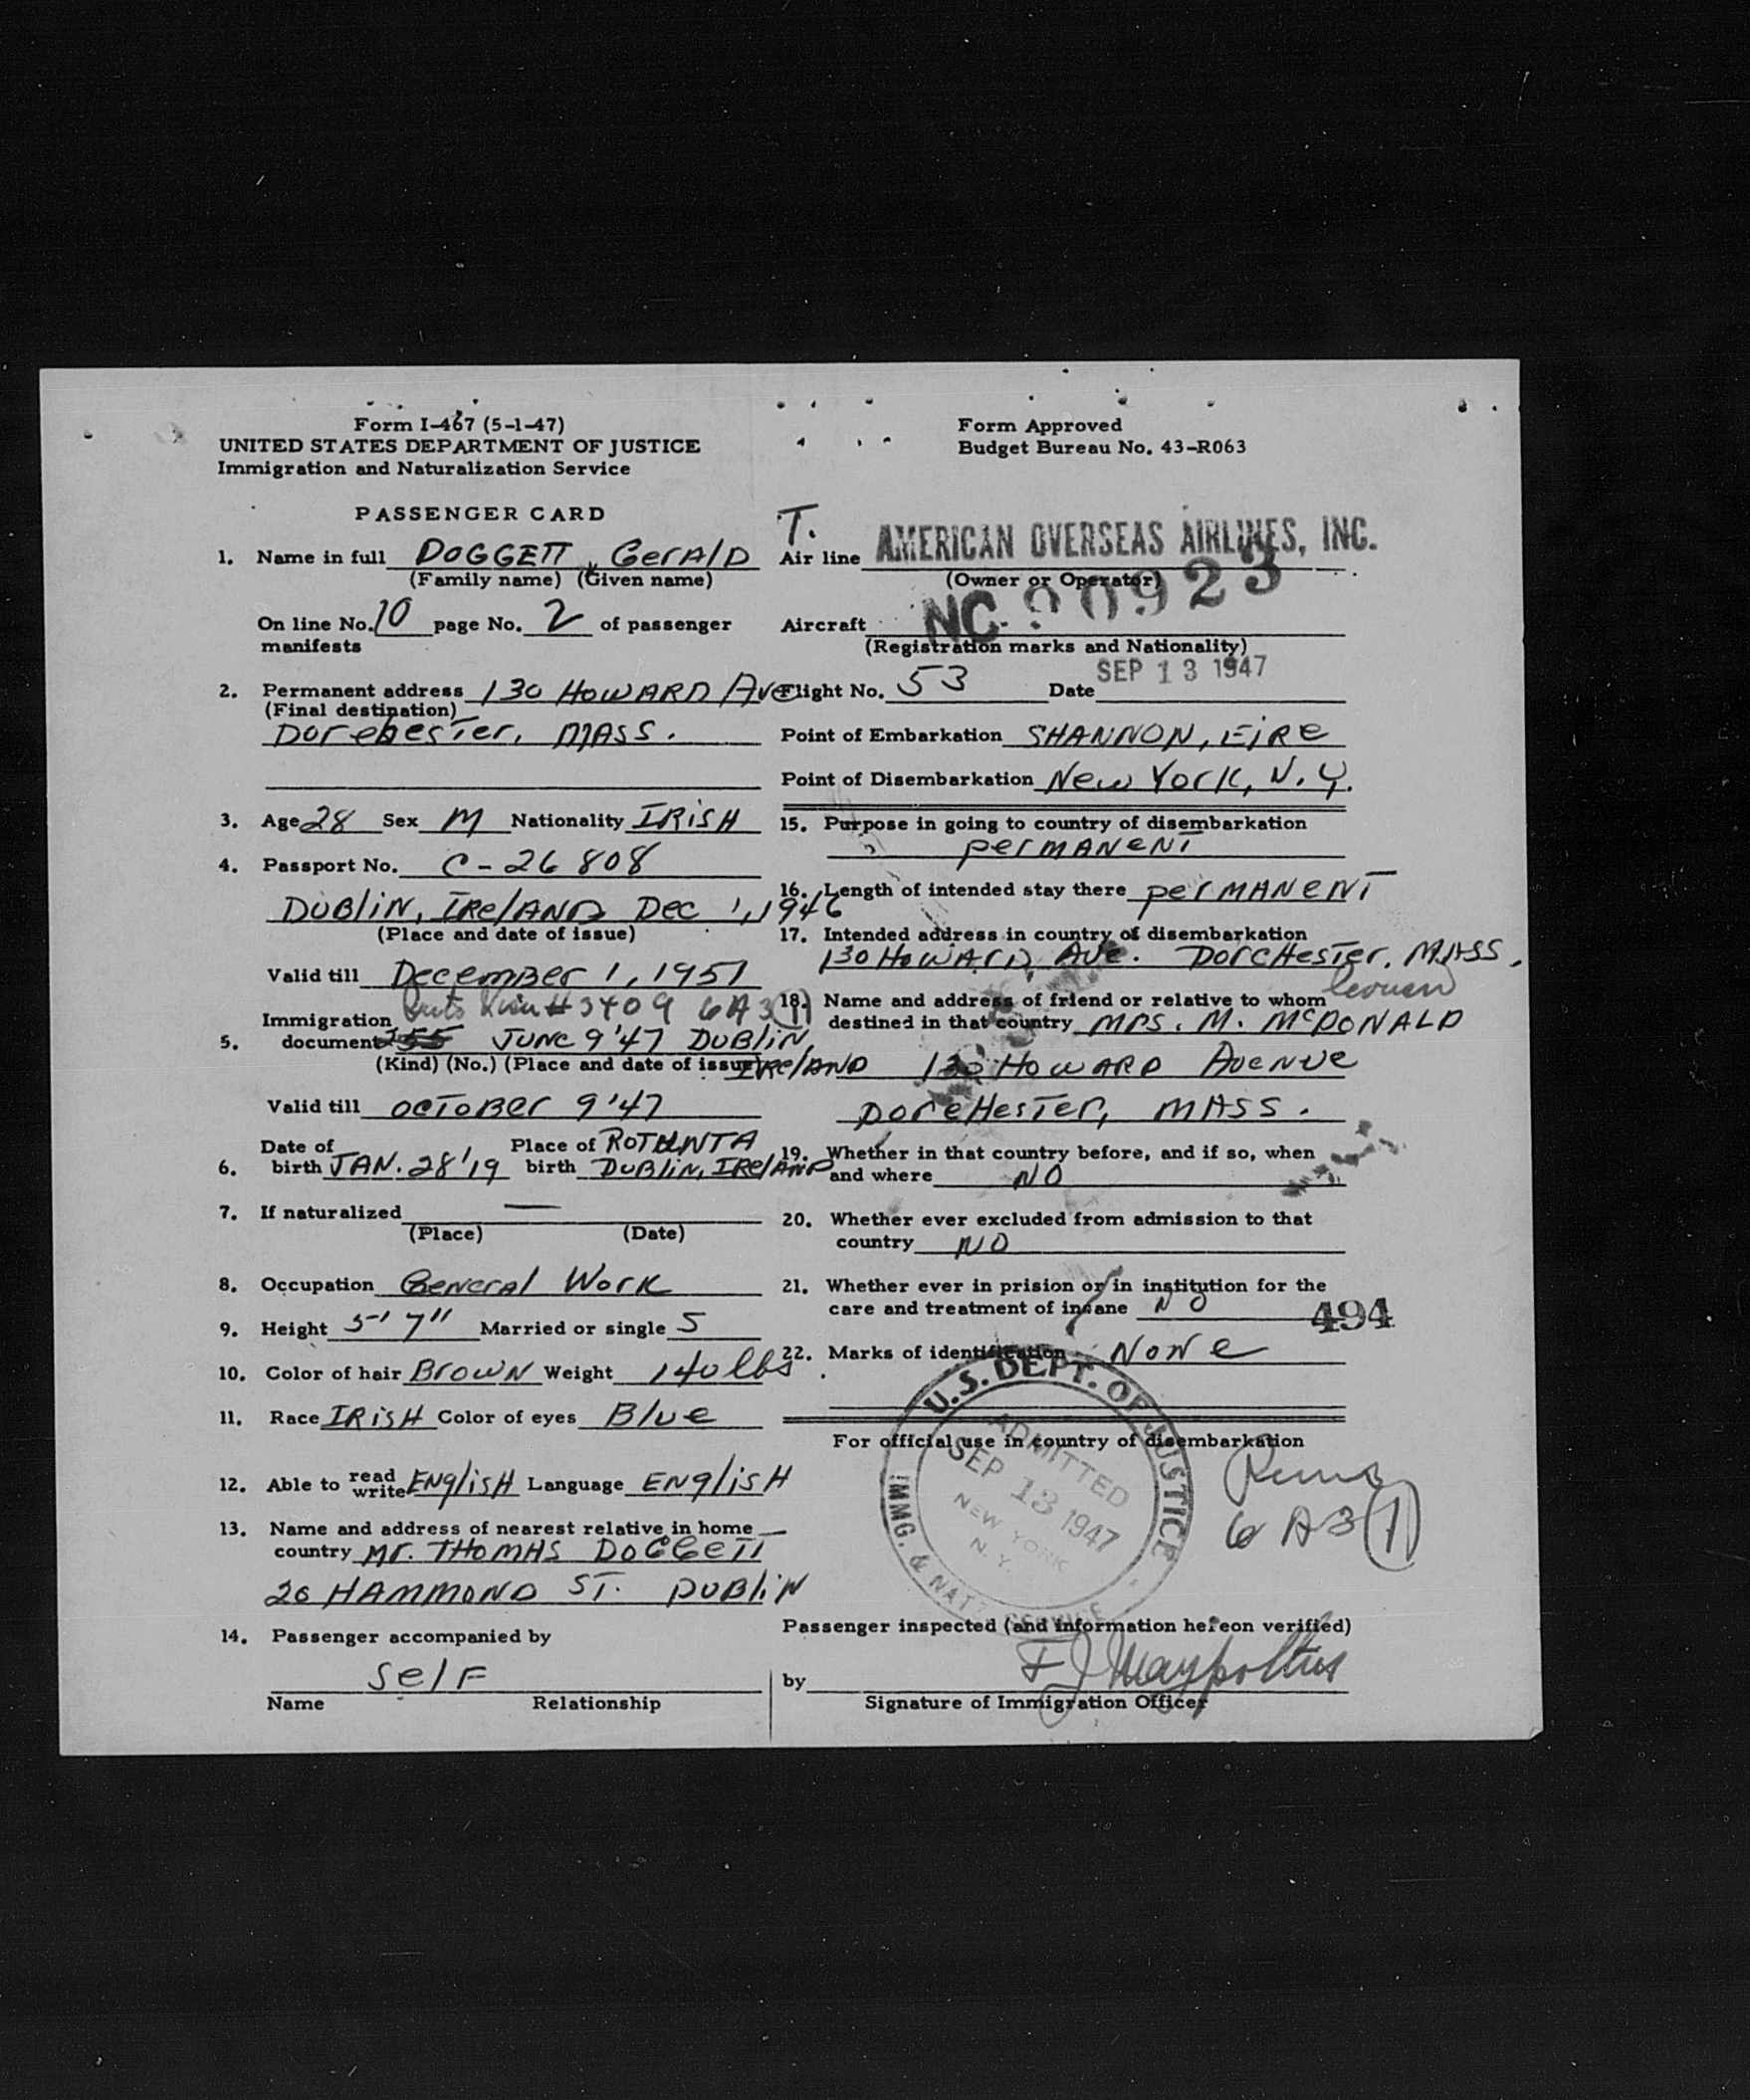 Form I-467 (5-1-47)
UNITED STATES DEPARTMENT OF JUSTICE
Immigration and Naturalization Service
Form Approved
Budget Bureau No. 43-R063
PASSENGER CARD
1. Name in full DOGGETT, GerAlD
(Family name) (Given name)
On line No. 10 page No. 2 of passenger
manifests
2. Permanent address 130 HOWARD Ave
(Final destination)
Dorchester, MASS.
3. Age 28 Sex M Nationality IRiSH
4. Passport No. C-26808
DUBliN, IRelAND Dec 1, 1946
(Place and date of issue)
Valid till December 1, 1951
#3409 6A3(1)
Immigration
5. document JUNE 9'47 DUBliN,
IRelAND
(Kind) (No.) (Place and date of issue)
Valid till OCTOBer 9'47
Date of Place of ROTUNTA
6. birth JAN. 28'19 birth DUBliN, IRelAND
7. If naturalized —
(Place) (Date)
8. Occupation General Work
9. Height 5' 7" Married or single S
10. Color of hair BrowN Weight 140 lbs.
11. Race IRiSH Color of eyes Blue
12. Able to read write ENgliSH Language ENgliSH
13. Name and address of nearest relative in home
country Mr. THOMAS DOGGETT
20 HAMMOND ST. DUBliN
14. Passenger accompanied by
SelF
Name Relationship
T.
Air line AMERICAN OVERSEAS AIRLINES, INC.
(Owner or Operator)
Aircraft NC 90923
(Registration marks and Nationality)
Flight No. 53 Date SEP 13 1947
Point of Embarkation SHANNON, EIRe
Point of Disembarkation New York, N.Y.
15. Purpose in going to country of disembarkation
perMANeNT
16. Length of intended stay there perMANeNT
17. Intended address in country of disembarkation
130 HowArD Ave. DorcHester, MASS.
18. Name and address of friend or relative to whom
destined in that country Mrs. M. McDONALD
130 HOWARD AveNue
DorcHesTer, MASS.
19. Whether in that country before, and if so, when
and where NO
20. Whether ever excluded from admission to that
country NO
21. Whether ever in prision or in institution for the
care and treatment of insane NO
494
22. Marks of identification NoNe
For official use in country of disembarkation
U.S. DEPT. OF JUSTICE
IMMG. & NATZ. SERVICE
ADMITTED
SEP 13 1947
NEW YORK
N. Y.
6 A3(1)
Passenger inspected (and information hereon verified)
by
Signature of Immigration Officer